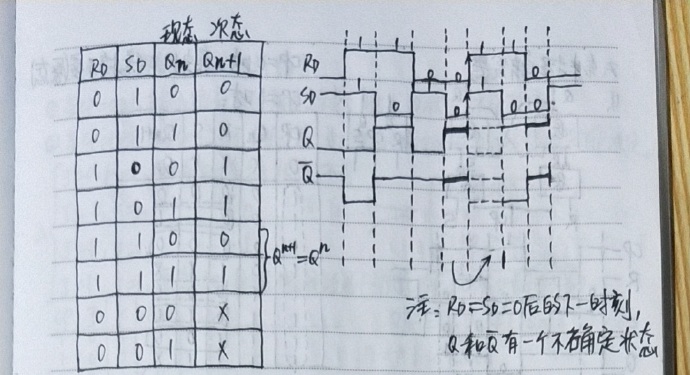 现态 次态
RD SD Qn Qn+1
0 1 0 0
0 1 1 0
1 0 0 1
1 0 1 1
1 1 0 0
1 1 1 1
0 0 0 X
0 0 1 X
Q^{n+1}=Q^n
RD 1 1 0 0 1 1 0
SD 1 0 1 0 1 0 0
Q
Q̅
注：RD=SD=0后的下一时刻，
Q和Q̅有一个不确定状态